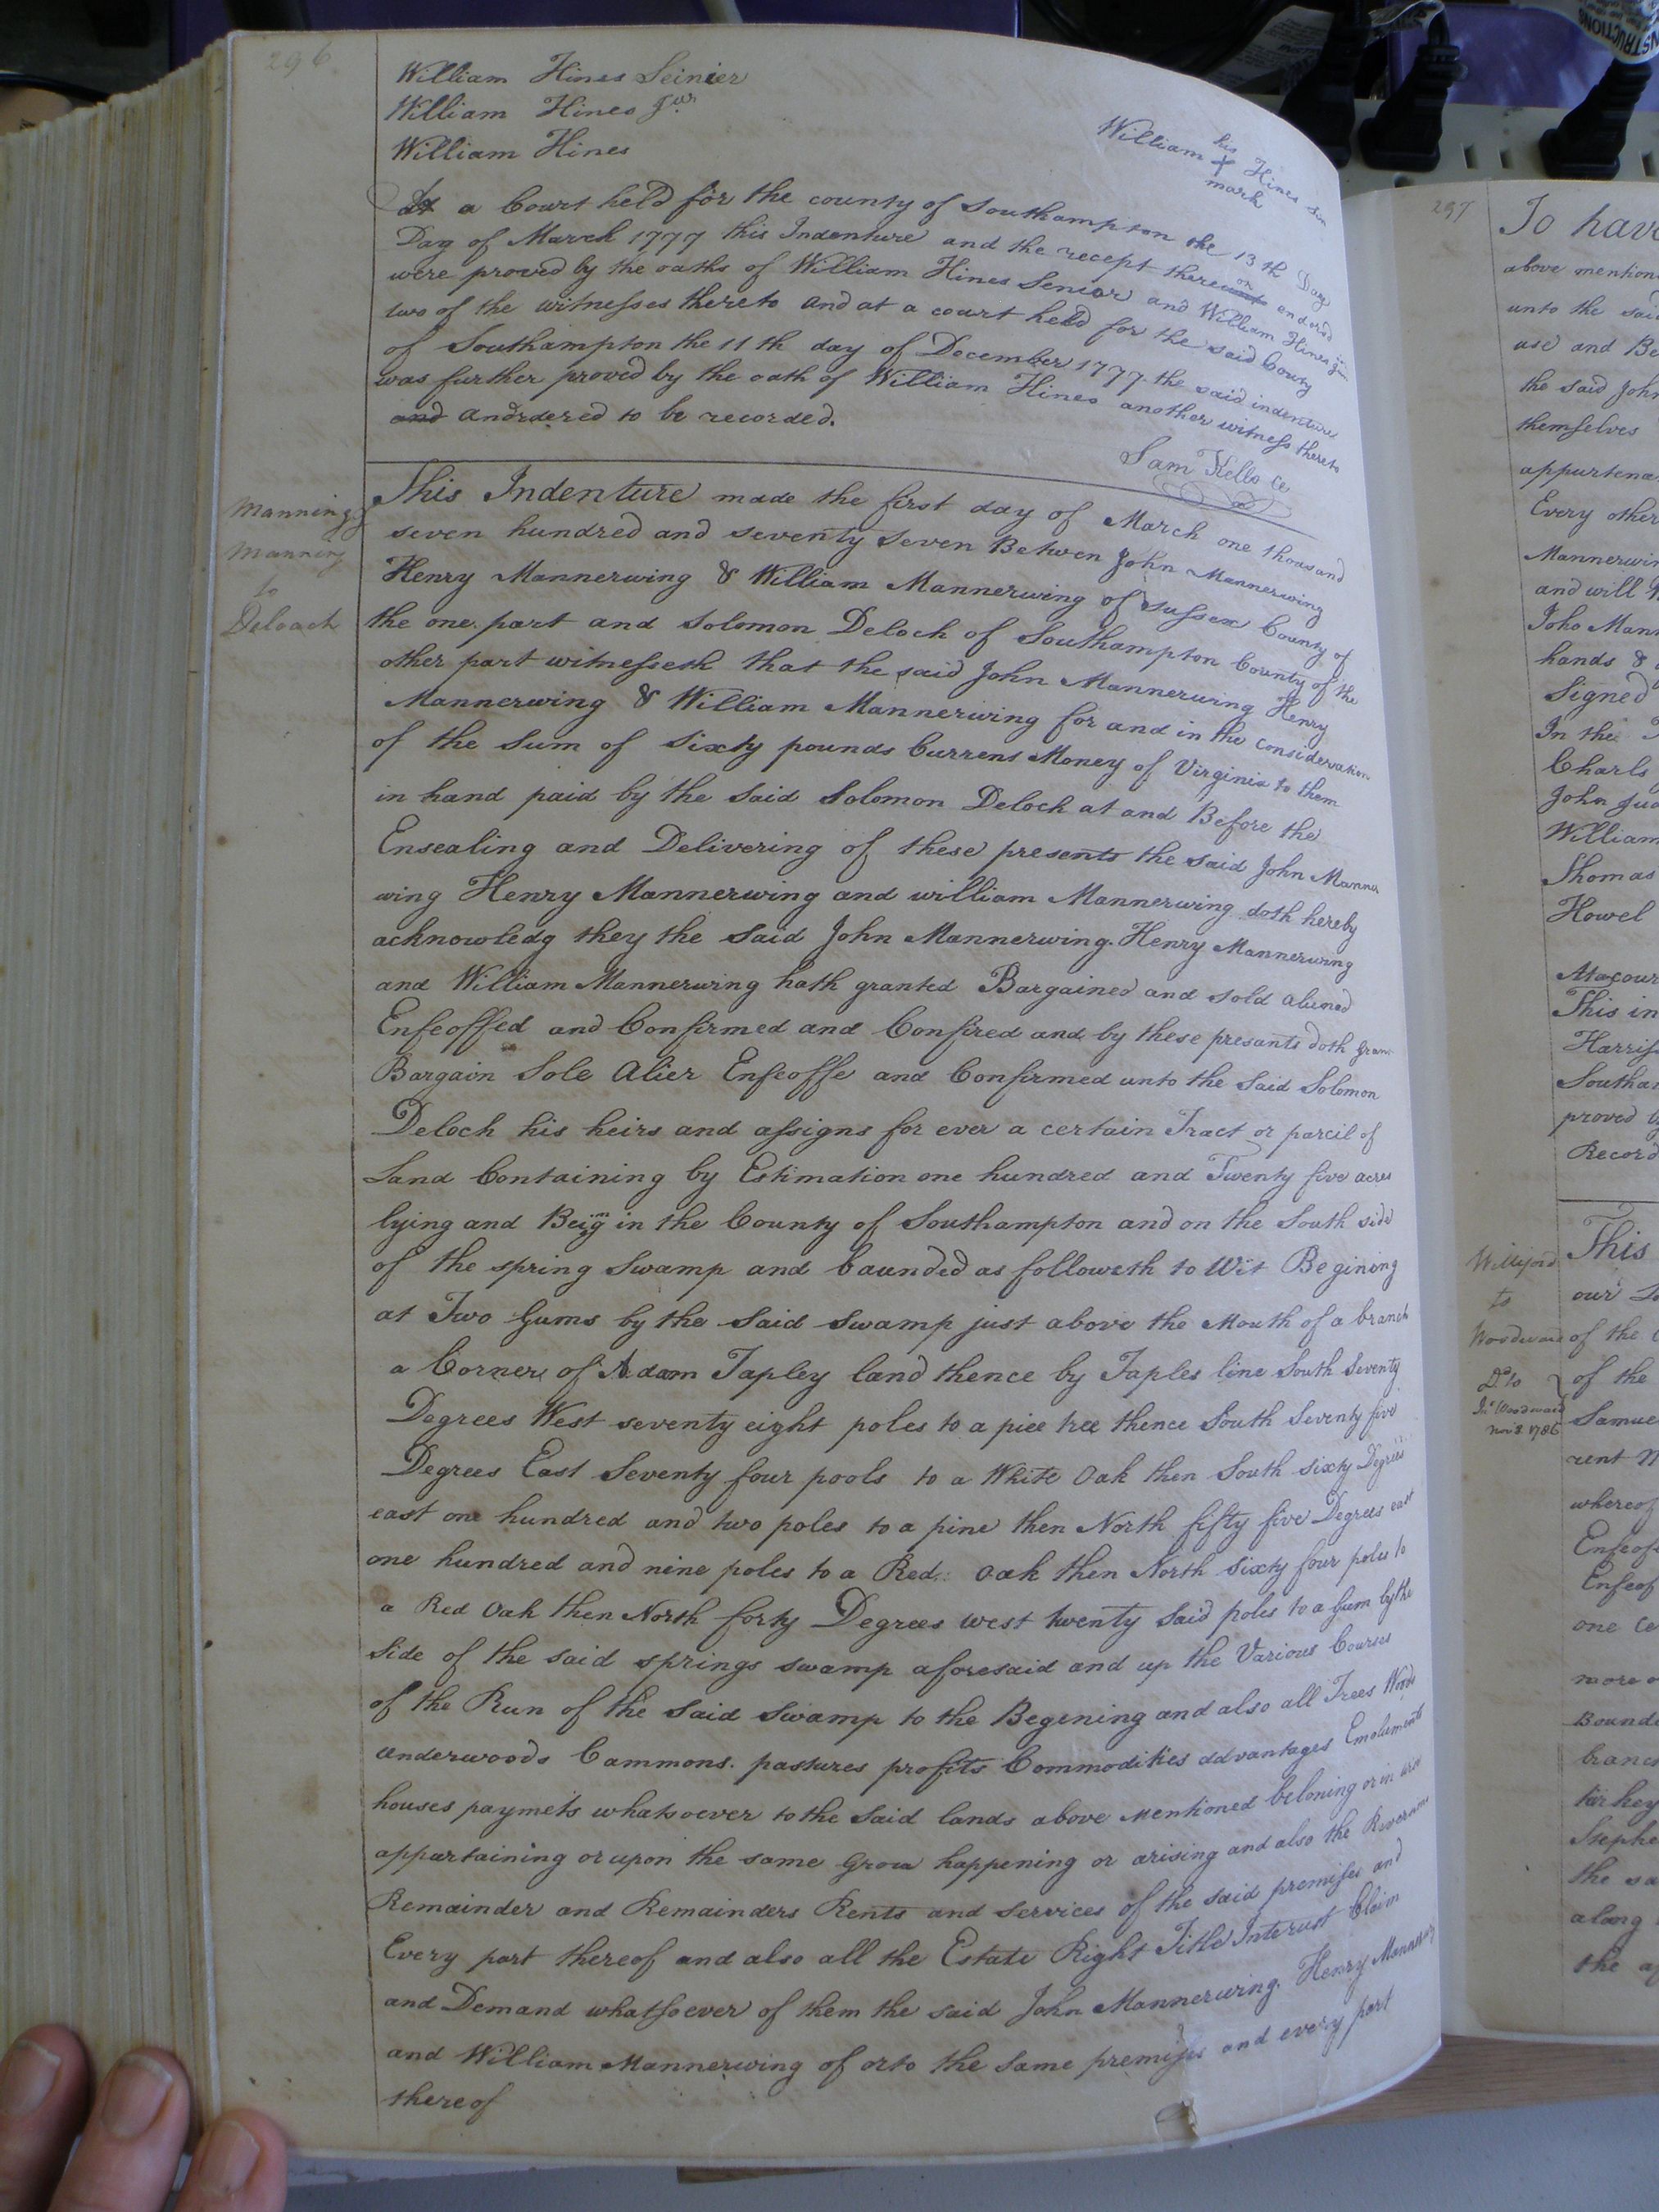 296
William Hines Seinier
William Hines Jur
William Hines
William his Hines Sin
mark
At a Court held for the county of Southampton the 13 th Day
Day of March 1777 this Indenture and the recept thereunto on endorsd
were proved by the oaths of William Hines Senior and William Hines Jun
two of the witnesses thereto and at a court held for the said County
of Southampton the 11 th day of December 1777. the said indenture
was further proved by the oath of William Hines another witness thereto
and andrdered to be recorded.
Sam Kello Ce
Manning
Manning
to
Deloach
This Indenture made the first day of March one thousand
seven hundred and seventy seven Betwen John Mannerwing
Henry Mannerwing & William Mannerwing of Sussex County of
the one part and Solomon Deloch of Southampton County of the
other part witnesseth that the said John Mannerwing Henry
Mannerwing & William Mannerwing for and in the consideration of
of the Sum of Sixty pounds Currens Money of Virginia to them
in hand paid by the Said Solomon Deloch at and Before the
Ensealing and Delivering of these presents the said John Manner
wing Henry Mannerwing and william Mannerwing doth hereby
acknowledg they the Said John Mannerwing. Henry Mannerwing
and William Mannerwing hath granted Bargained and sold aliened
Enfeoffed and Confirmed and Confired and by these presants doth Gran
Bargain Sole Alier Enfeoffe and Confirmed unto the Said Solomon
Deloch his heirs and assigns for ever a certain Tract or parcil of
Land Containing by Estimation one hundred and Twenty five acres
lying and Beig in the County of Southampton and on the South side
of the spring Swamp and baunded as followeth to Wit Begining
at Two Gums by the Said Swamp just above the Mouth of a branch
a Corner of Adam Tapley land thence by Taples line South Seventy
Degrees West seventy eight poles to a piee tree thence South Seventy five
Degrees East Seventy four pools to a White Oak then South sixty Degrees
east one hundred and two poles to a pine then North fifty five Degrees east
one hundred and nine poles to a Red Oak then North Sixty four poles to
a Red Oak then North forty Degrees west twenty Said poles to a Gum by the
Side of the said springs swamp aforesaid and up the Various Courses
of the Run of the Said Swamp to the Begening and also all Trees Woods
underwoods Cammons. pastures profits Commodities advantages Emoluments
houses paymets whatsoever to the Said lands above mentioned beloning or in
appartaining or upon the same Grow happening or arising and also the
Remainder and Remainders Rents and Services of the said premises and
Every part thereof and also all the Estate Right Title Interust Claim
and Demand whatsoever of them the said John Mannerwing. Henry
and William Mannerwing of or to the Same premises and every part
thereof
297
To have
above mention
unto the said
use and Be
the said John
themselves
appurtena
Every other
Mannerwin
and will
Joho Mann
hands &
Signed
In the
Charls
John Jud
William
Thomas
Howel
At a cour
This in
Harris
Southa
proved
Record
Williford
to
Woodward
Do to
Jno Woodward
Novr 8. 1786
This
our
of the
of the
Samue
rent
whereof
Enfeof
Enfeof
one ce
more o
Bound
branc
Stephe
the sa
along
the